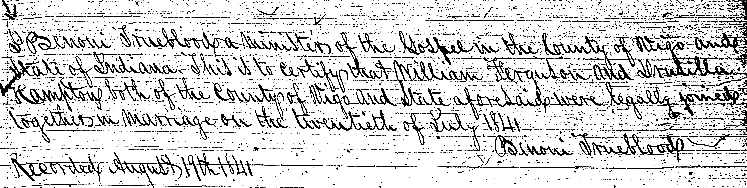 I Binoni Trueblood a Minister of the Gospel in the County of Vigo and
State of Indiana This is to certify that William Ferguson and Dradilla
Hampton both of the County of Vigo and State aforesaid were legally joined
together in Marriage on the twentieth of July 1841
Binoni Trueblood
Recorded August 19th 1841